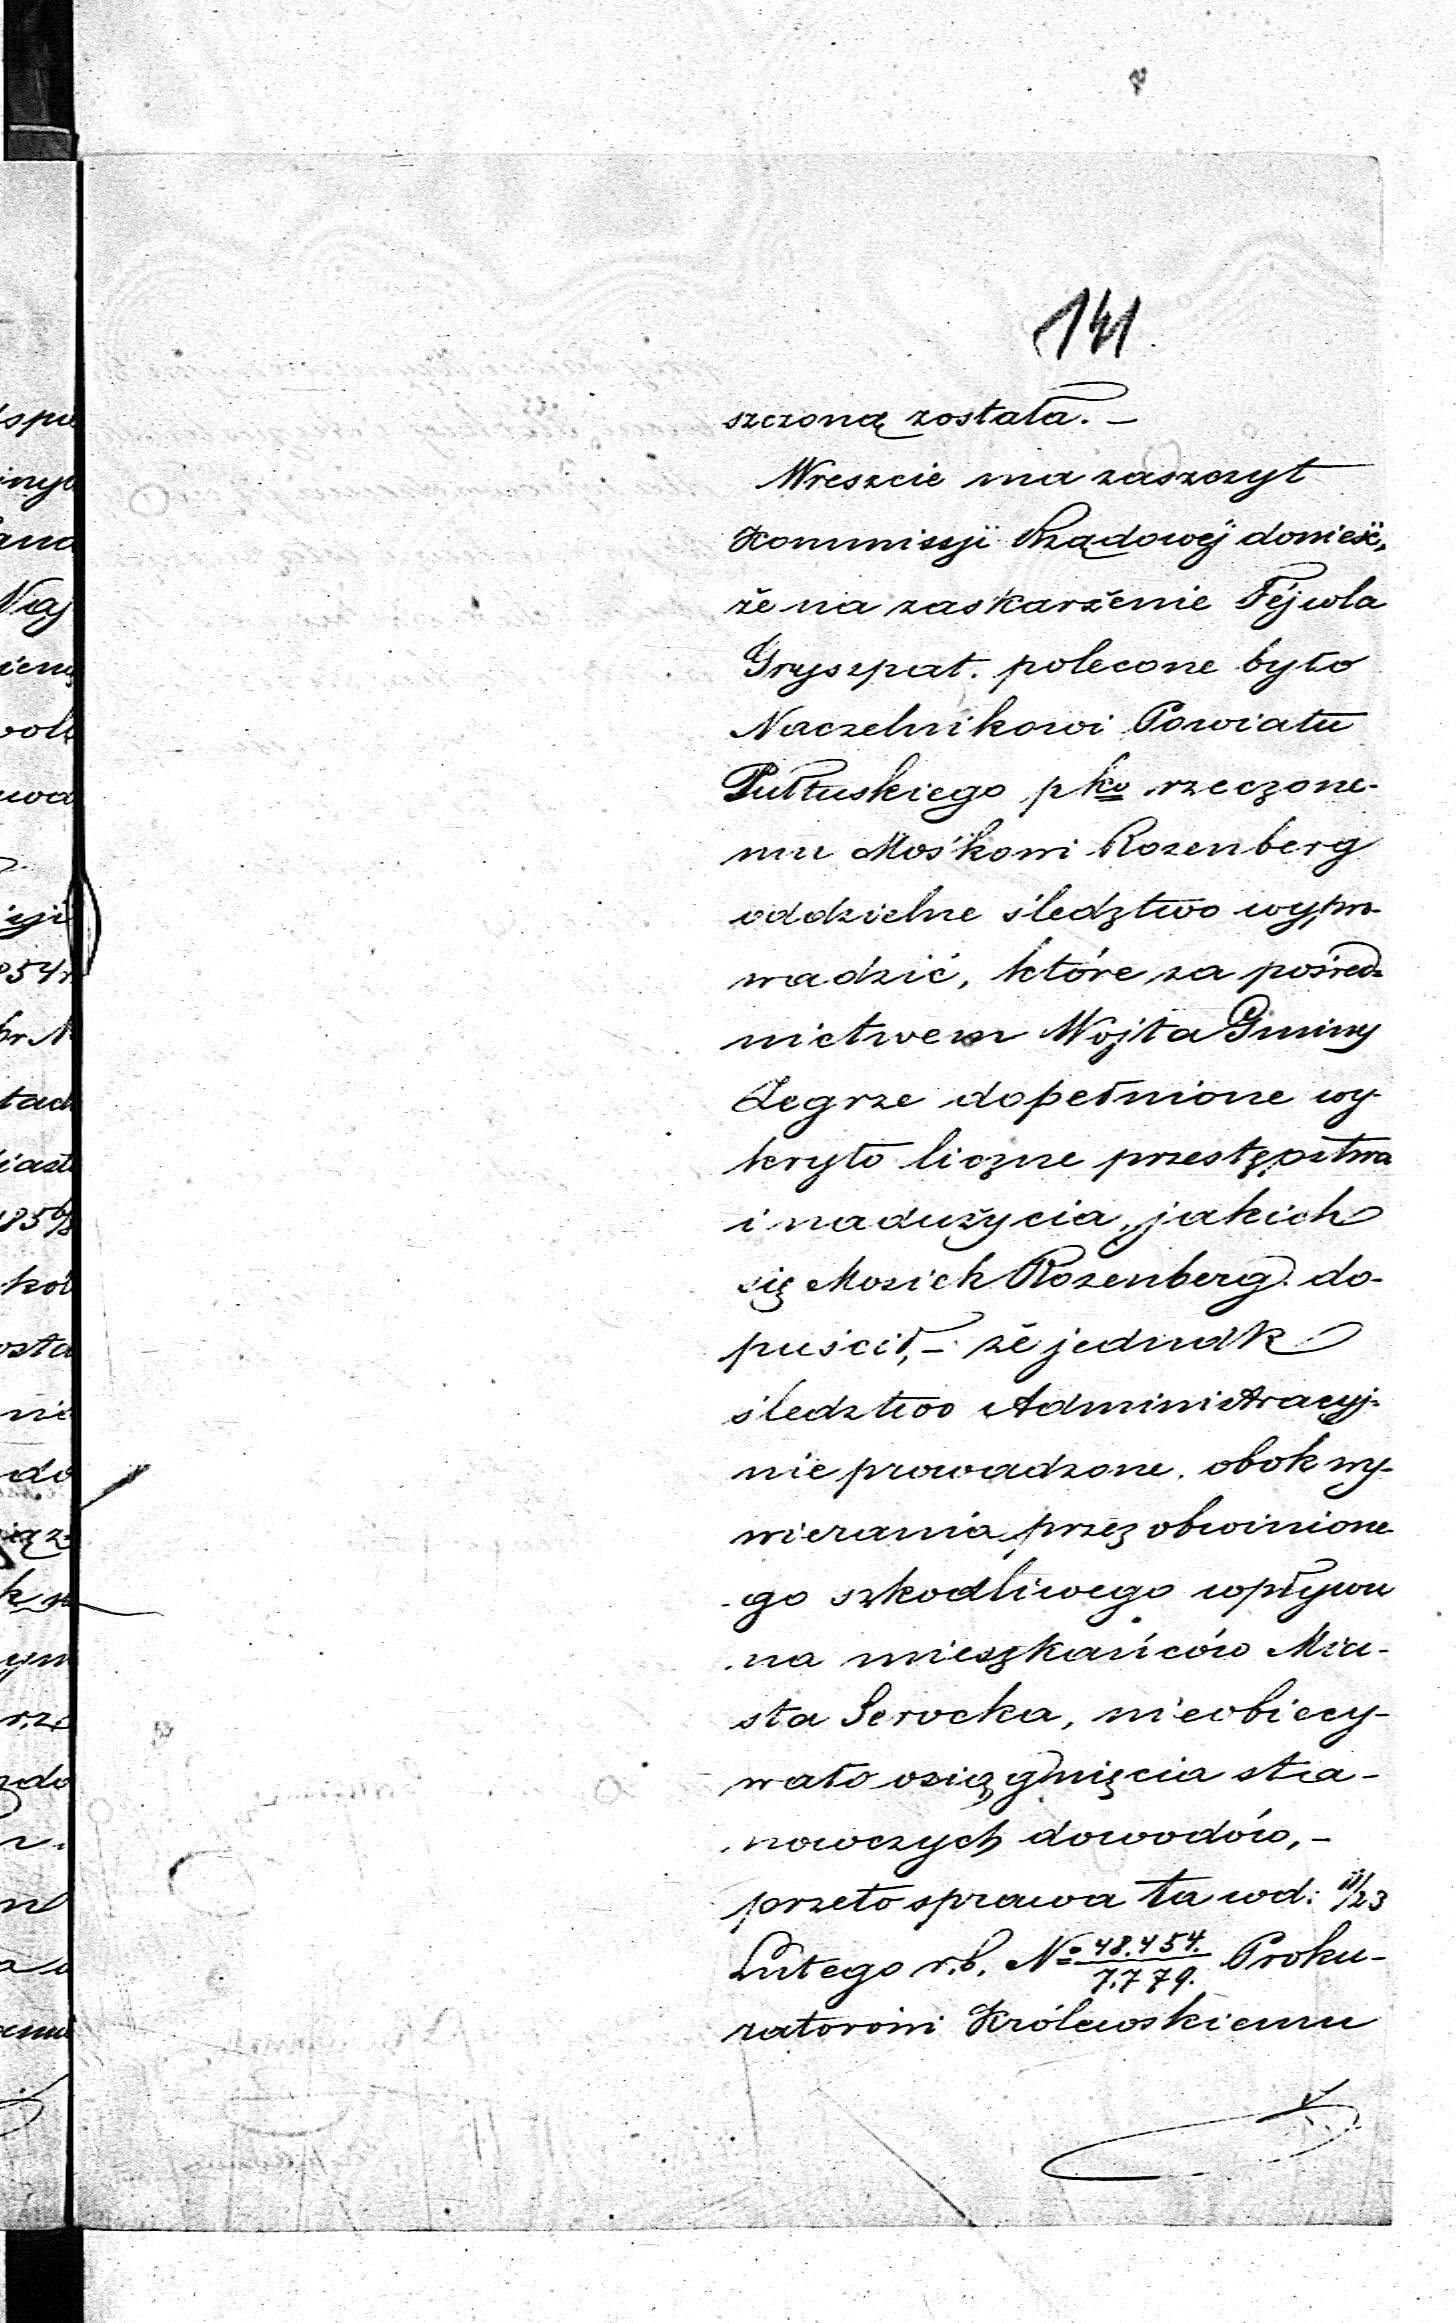 141
szczoną została. —
Wreszcie ma zaszczyt
Kommissyi Rządowéj donieść,
że na zaskarżenie Féjwla
Gryszpat. polecone było
Naczelnikowi Powiatu
Pułtuskiego pko rzeczone-
mu Mośkowi Rozenberg
oddzielne śledztwo wypro-
wadzić, które za pośred-
nictwem Wójta Gminy
Zegrze dopełnione wy-
kryło liczne przestępstwa
i nadużycia, jakich
się Mosiek Rozenberg do-
puścił, — że jednak
śledztwo Administracyj-
nie prowadzone, obok wy-
wierania przez obwinione-
go szkodliwego wpływu
na mieszkańców Mia-
sta Serocka, nieobiecy-
wało osiągnięcia sta-
nowczych dowodów, —
przeto sprawa ta wd: 11/23
Lutego r.b. № 48.454./7.779. Proku-
ratorowi Królewskiemu